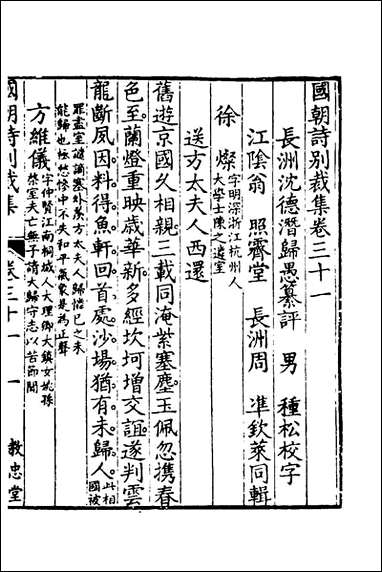 國朝詩別裁集卷三十一
長洲沈德潛歸愚纂評　男　種松校字
江陰翁　照霽堂　長洲周　準欽萊同輯
徐　燦字明深浙江杭州人
大學士陳之遴室
送方太夫人西還
舊遊京國久相親三載同淹紫塞塵玉佩忽攜春
色至蘭燈重映歲華新多經坎坷增交誼遂判雲
龍斷夙因料得魚軒回首處沙場猶有未歸人此相
國被
罪盡室謫謫塞外於方太夫人歸惜已之未
能歸也極悲慘中不失和平氣象是為正聲
方維儀字仲賢江南桐城人大理卿大鎮女姚孫
棨室夫亡無子請大歸守志以苦節聞
國朝詩別裁集
卷三十一
一
教忠堂